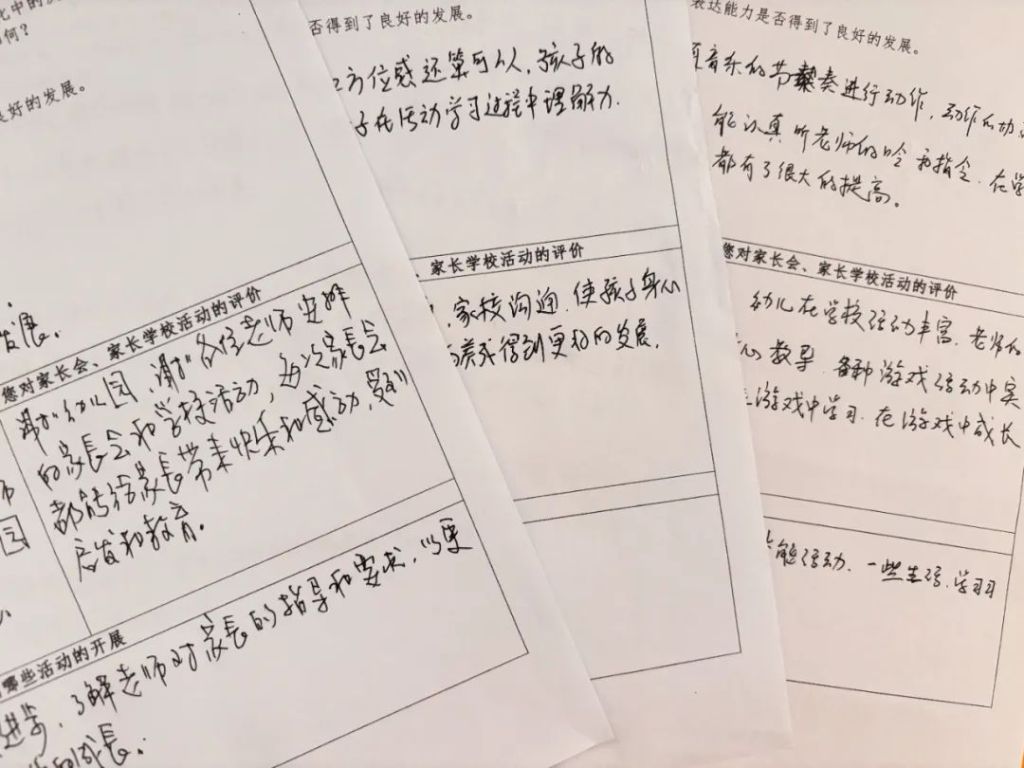 何？
好的发展。
发展.
您对家长会、家长学校活动的评价
谢谢幼儿园,谢谢各位老师安排
的家長会和学校活动,每次家長会
都能给家長带来快乐和感动,受到
启发和教育.
哪些活动的开展
进步,了解老师对家長的指导和要求,以更
成長.
否得到了良好的发展。
方位感还算可以,孩子的
子在活动学习过程中理解力.
家长学校活动的评价
家校沟通,使孩子身心
养成得到更好的发展.
表达能力是否得到了良好的发展。
音乐的节奏进行动作,动作
能认真听老师的口令和指令.在学
都有了很大的提高。
您对家长会、家长学校活动的评价
幼儿在学校活动丰富,老师的
心教导.各种游戏活动中实
游戏中学习.在游戏中成长
能活动.一些生活,学习习